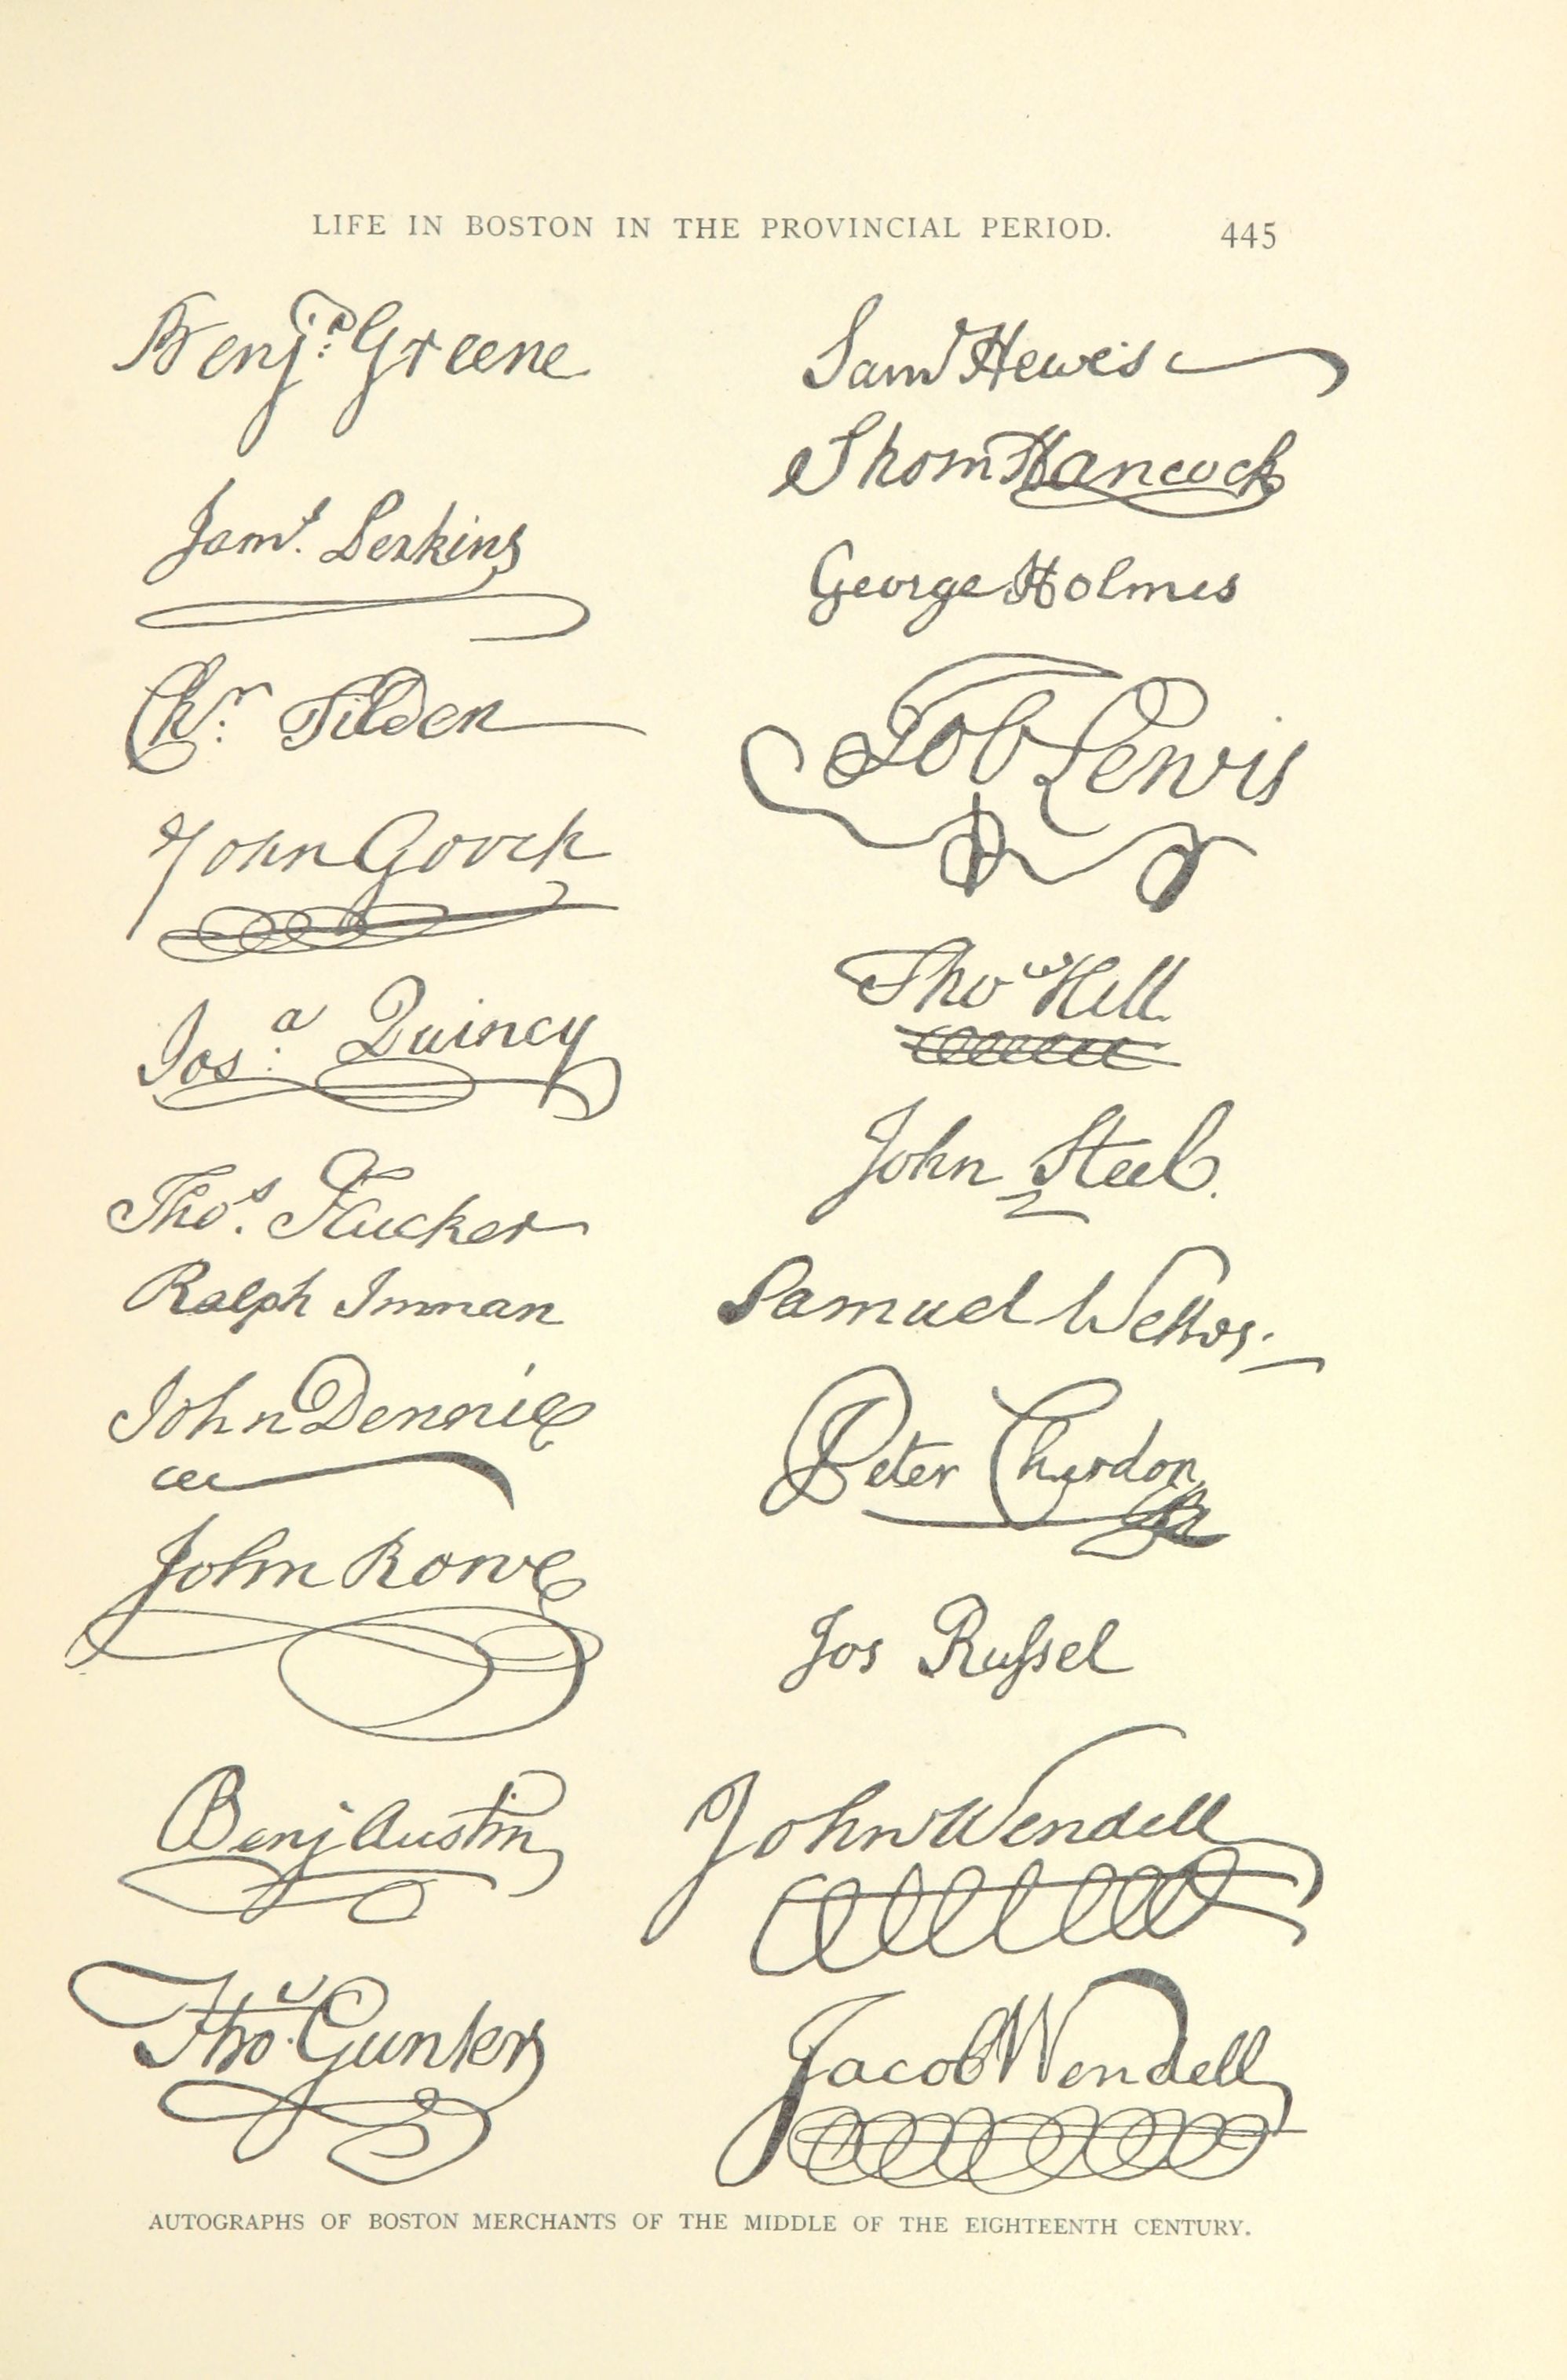 LIFE IN BOSTON IN THE PROVINCIAL PERIOD. 445
Benjᵃ Greene
Jamˢ. Perkins
Chʳ. Tilden
John Gooch
Josᵃ: Quincy
Thoˢ. Flucker
Ralph Inman
John Dennie
John Rowe
Benj Austin
Thoˢ. Gunter
Samˡ Hewes
Thom Hancock
George Holmes
Job Lewis
Thoˢ Hill
John Steel.
Samuel Welles.
Peter Chardon
Jos Rufsel
John Wendell
Jacob Wendell
AUTOGRAPHS OF BOSTON MERCHANTS OF THE MIDDLE OF THE EIGHTEENTH CENTURY.